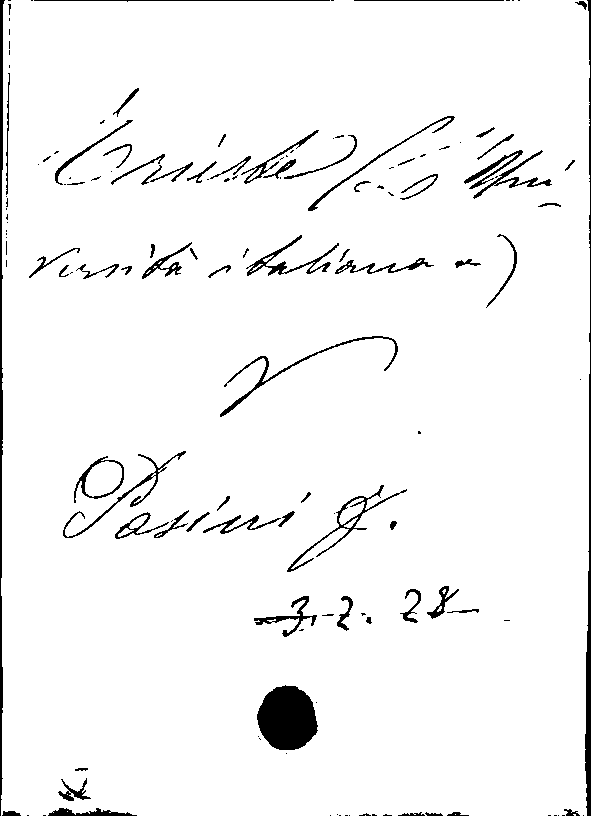 Trieste (L'Uni-
versità italiana a)
v
Pasini F.
3. 2. 28